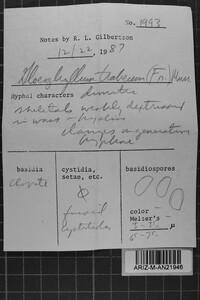 No. 1993
Notes by R. L. Gilbertson
12/22, 1987
Gloeophyllum trabeum (Fr.) Murr.
Hyphal characters dimitic
skeletals weakly dextrinoid
in mass - hyalin
clamps on generative
hyphae
basidia
cystidia,
setae, etc.
basidiospores
clavate
fusoid
cystidioles
color
Melzer's -
µ
ARIZ-M-AN21946